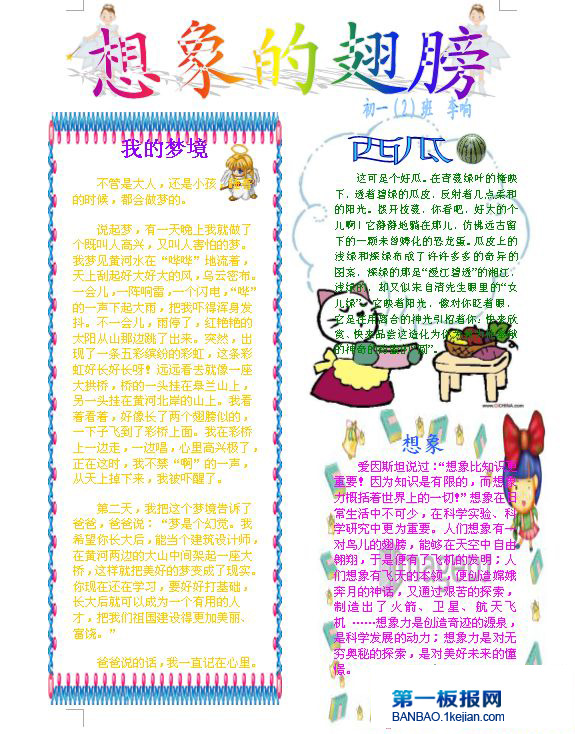 想象的翅膀
初一（2）班 李响
我的梦境
不管是大人，还是小孩，
的时候，都会做梦的。
说起梦，有一天晚上我就做了
个既叫人高兴，又叫人害怕的梦。
我梦见黄河水在“哗哗”地流着，
天上刮起好大好大的风，乌云密布。
一会儿，一阵响雷，一个闪电，“哗”
的一声下起大雨，把我吓得浑身发
抖。不一会儿，雨停了，红艳艳的
太阳从山那边跳了出来。突然，出
现了一条五彩缤纷的彩虹，这条彩
虹好长好长呀！远远看去就像一座
大拱桥，桥的一头挂在皋兰山上，
另一头挂在黄河北岸的山上。我看
着看着，好像长了两个翅膀似的，
一下子飞到了彩桥上面。我在彩桥
上一边走，一边唱，心里高兴极了，
正在这时，我不禁“啊”的一声，
从天上掉下来，我被吓醒了。
第二天，我把这个梦境告诉了
爸爸，爸爸说：“梦是个幻觉。我
希望你长大后，能当个建筑设计师，
在黄河两边的大山中间架起一座大
桥，这样就把美好的梦变成了现实。
你现在还在学习，要好好打基础，
长大后就可以成为一个有用的人
才，把我们祖国建设得更加美丽、
富饶。”
爸爸说的话，我一直记在心里。
西瓜
这可是个好瓜。在青蔓绿叶的掩映
下，透着碧绿的瓜皮，反射着几点柔和
的阳光。拨开枝蔓，你看吧，好大的个
儿啊！它静静地躺在那儿，仿佛远古留
下的一颗未曾孵化的恐龙蛋。瓜皮上的
浅绿和深绿布成了许许多多的奇异的
图案，深绿的那是“漫江碧透”的湘江，
浅绿的，却又似朱自清先生眼里的“女
儿绿”。它映着阳光，像对你眨着眼，
它是在用离合的神光引招着你：快来欣
赏、快来品尝这造化为你
的神奇的
www.CICHINA.com
想象
爱因斯坦说过：“想象比知识更
重要！因为知识是有限的，而想象
力概括着世界上的一切！”想象在日
常生活中不可少，在科学实验、科
学研究中更为重要。人们想象有一
对鸟儿的翅膀，能够在天空中自由
翱翔，于是便有了飞机的发明；人
们想象有飞天的本领，便创造嫦娥
奔月的神话，又通过艰苦的探索，
制造出了火箭、卫星、航天飞
机……想象力是创造奇迹的源泉，
是科学发展的动力；想象力是对无
穷奥秘的探索，是对美好未来的憧
憬。
第一板报网
BANBAO.1kejian.com